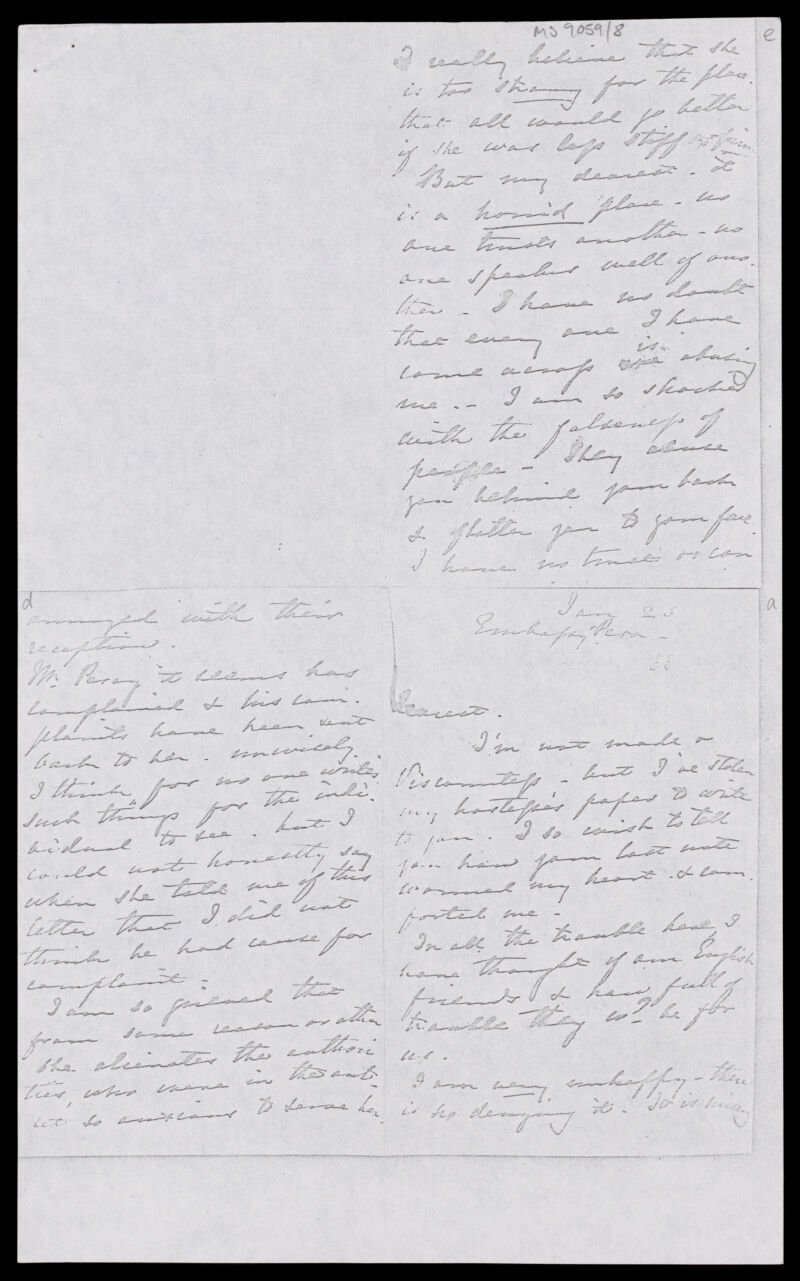 MS 9059/8
e
I really believe that she
is too strong for the place.
that all would go better
if she was less stiff
But my dearest - it
is a horrid place - no
one trusts another - no
one speaks well of ano-
ther - I have no doubt
that every one I have
come across is abusing
me. - I am so shocked
with the falseness of
people - They abuse
you behind your back
& flatter you to your face
I have no trust or con
d
annoyed with their
reception.
Mr. Percy it seems has
complained & his com-
plaints have been sent
back to her. unwisely
I think for no one writes
such things for the indi-
vidual to see. but I
could not honestly say
when she told me of this
letter that I did not
think he had cause for
complaint -
I am so grieved that
from some reason or other
she alienates the authori
ties, who were in the out-
set so anxious to serve her.
a
Jan 25
Embassy Pera -
56
Dearest.
I'm not made a
Viscountess - but I've stolen
my hostess's paper to write
to you. I so wish to tell
you how your last note
warmed my heart & com-
forted me -
In all the trouble here, I
have thought of our English
friends & how full of
trouble they wd. be for
us.
I am very unhappy - there
is no denying it. It is